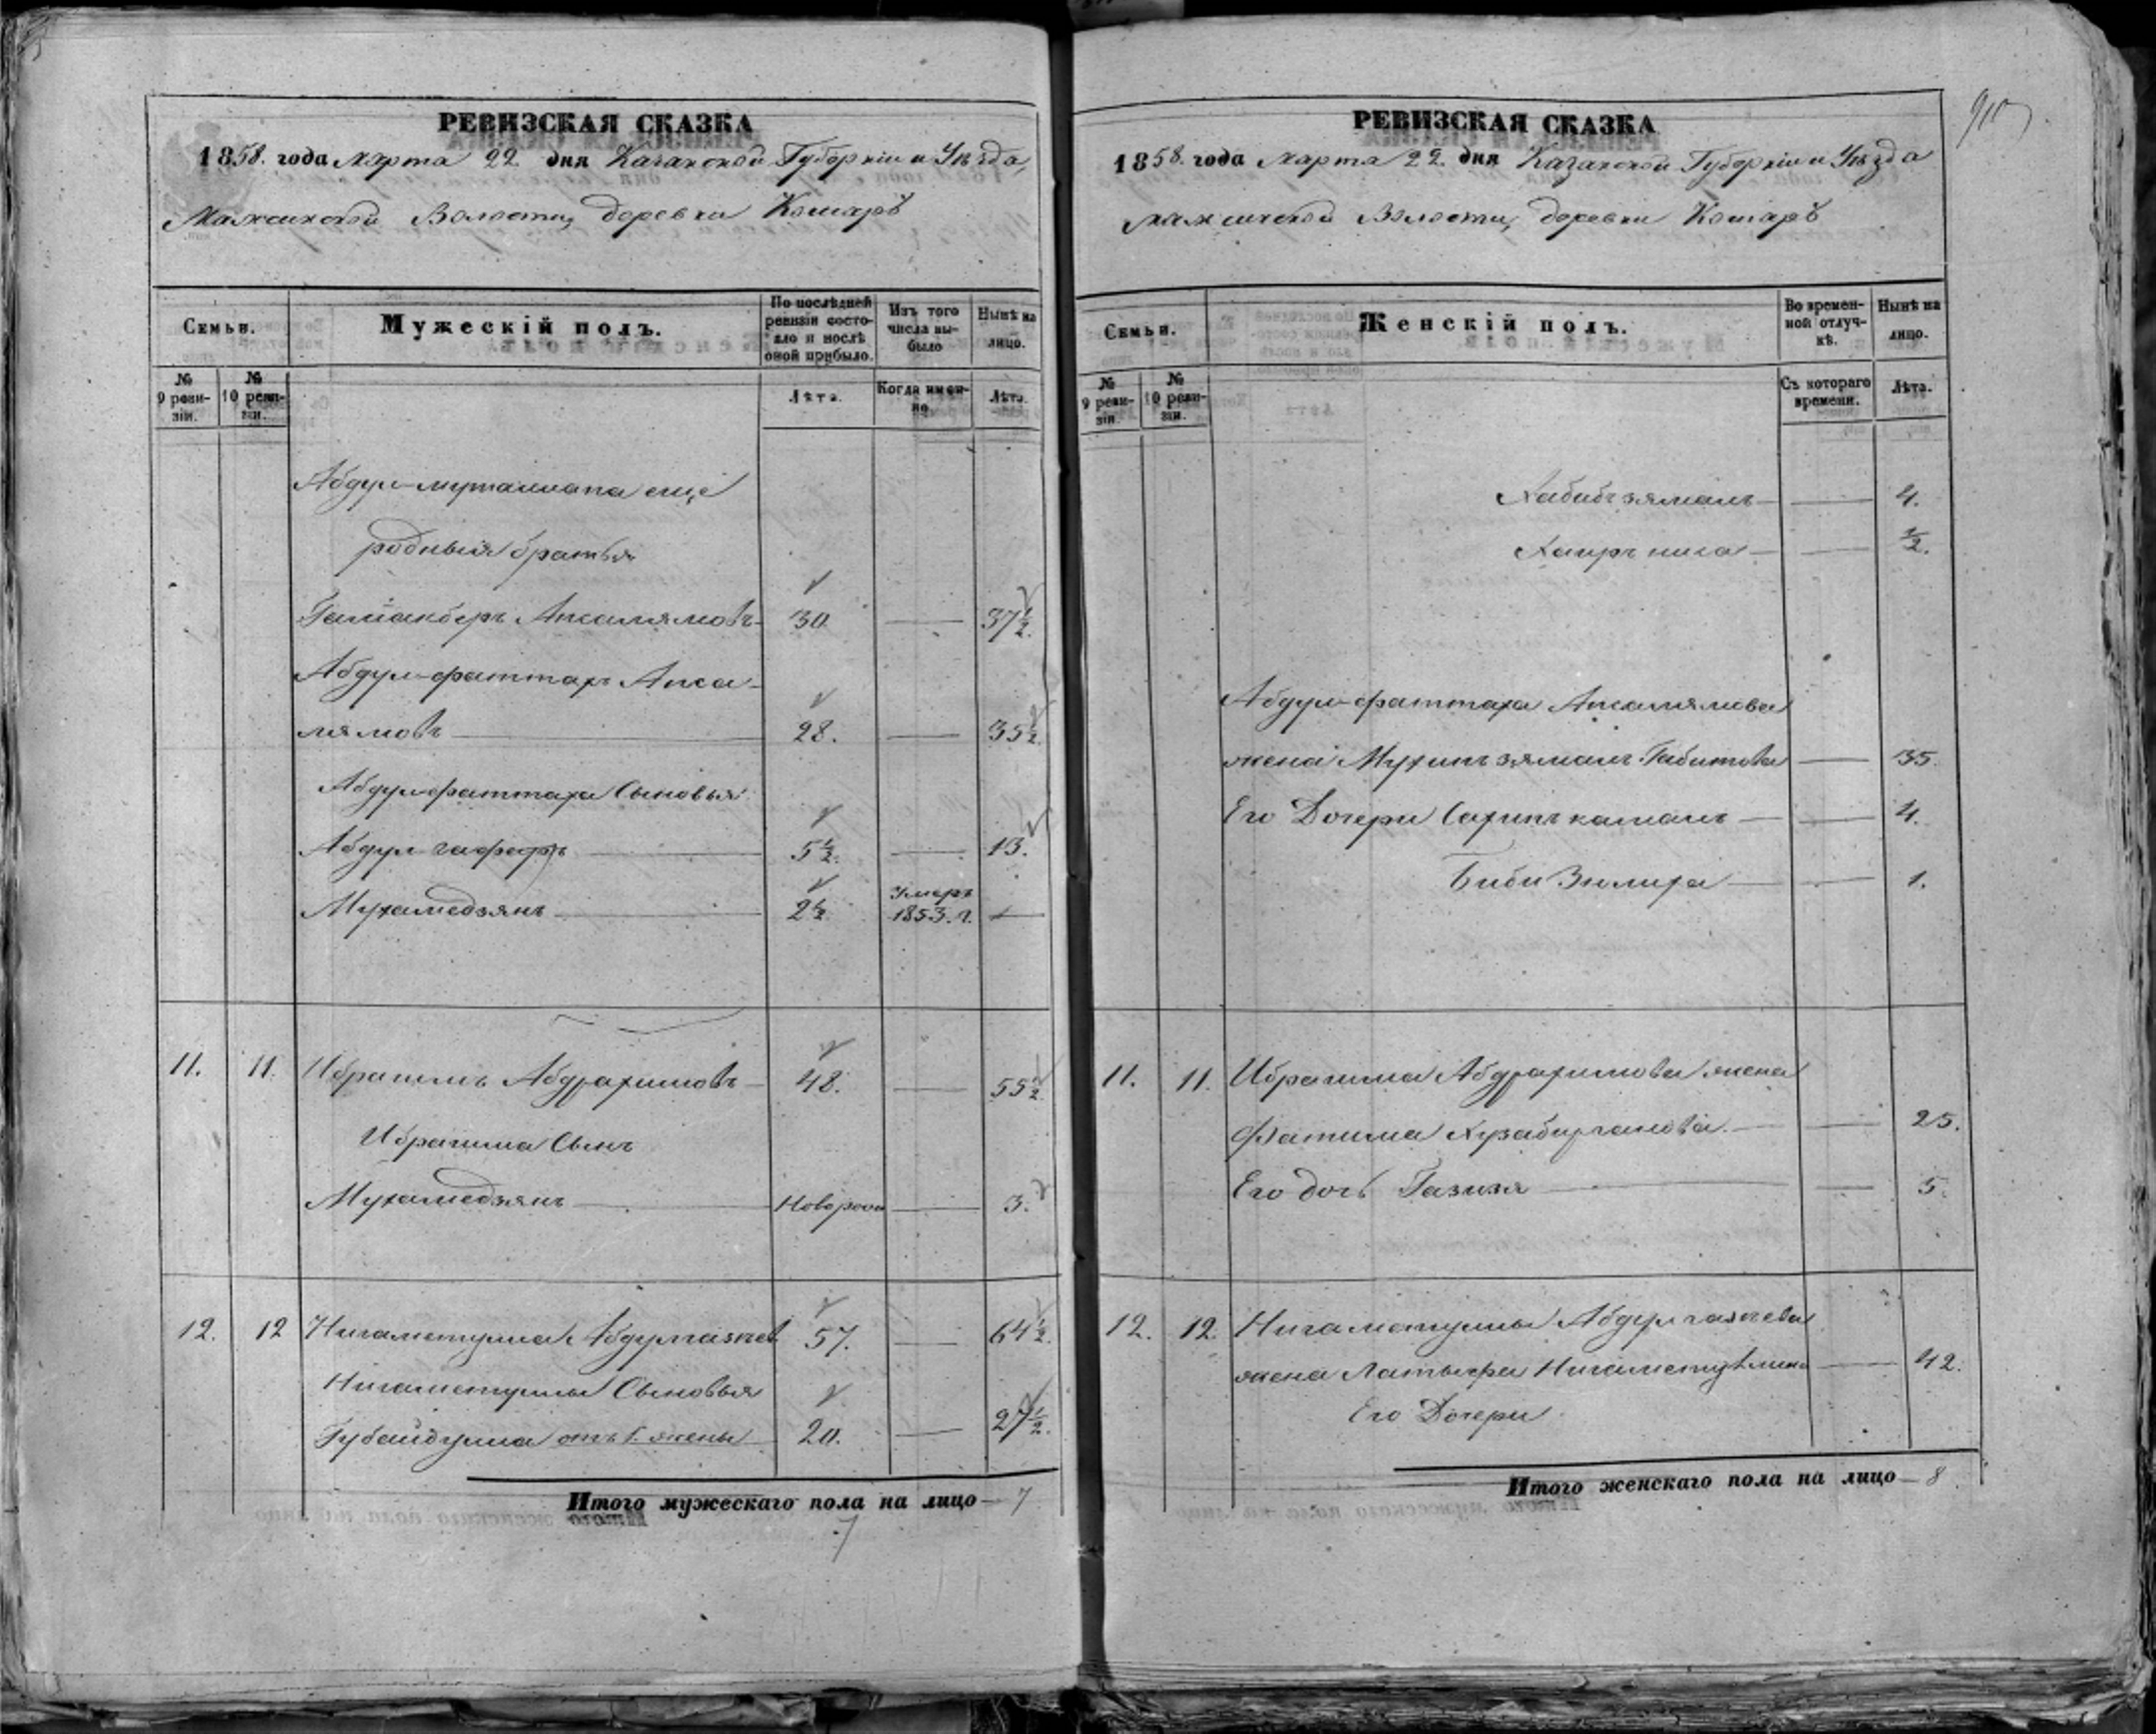 РЕВИЗСКАЯ СКАЗКА
1858. года Марта 22 дня Казанской Губерніи и Уѣзда,
Мамсинской Волости, деревни Кошаръ
Семьи.
Мужескій полъ.
По послѣдней ревизіи состояло и послѣ оной прибыло.
Изъ того числа выбыло
Нынѣ на лицо.
№ 9 ревизіи.
№ 10 ревизіи.
Лѣта.
Когда именно.
Лѣта.
Абдул-муталлапа еще
родныя братья
Апсалямовъ 30 — 37 ½.
Абдул-фаттахъ Апса-
лямовъ — 28. — 35 ½
Абдул-фаттаха Сыновья
Абдул гафаръ — 5 ½. — 13.
Мухамедзянъ — 2 ½ Умеръ 1853. г. —
11. 11. Ибрагимъ Абдрахимовъ — 48. — 55 ½
Ибрагима Сынъ
Мухамедзянъ — Новорож — 3.
12. 12 Нигаметулла Абдулгазиев 57. — 64 ½.
Нигаметуллы Сыновья
Губайдулла отъ 1. жены 20. — 27 ½.
Итого мужескаго пола на лицо — 7
7
РЕВИЗСКАЯ СКАЗКА
1858. года Марта 22. дня Казанской Губерніи и Уѣзда
Мамсинской Волости, деревни Кошаръ
Семьи.
Женскій полъ.
Во временной отлучкѣ.
Нынѣ на лицо.
№ 9 ревизіи.
№ 10 ревизіи.
Съ котораго времени.
Лѣта.
Хабибъзямалъ — — 4.
Хаиръ ниса — — ½.
Абдул-фаттаха Апсалямова
жена Габитова — 35.
Его Дочери — — 4.
Биби — — 1.
11. 11. Ибрагима Абдрахимова жена
Фатима — — 25.
Его дочь Газизя — — 5.
12. 12. Нигаметуллы Абдулгазиева
жена Латыфа — 42.
Его Дочери
Итого женскаго пола на лицо — 8